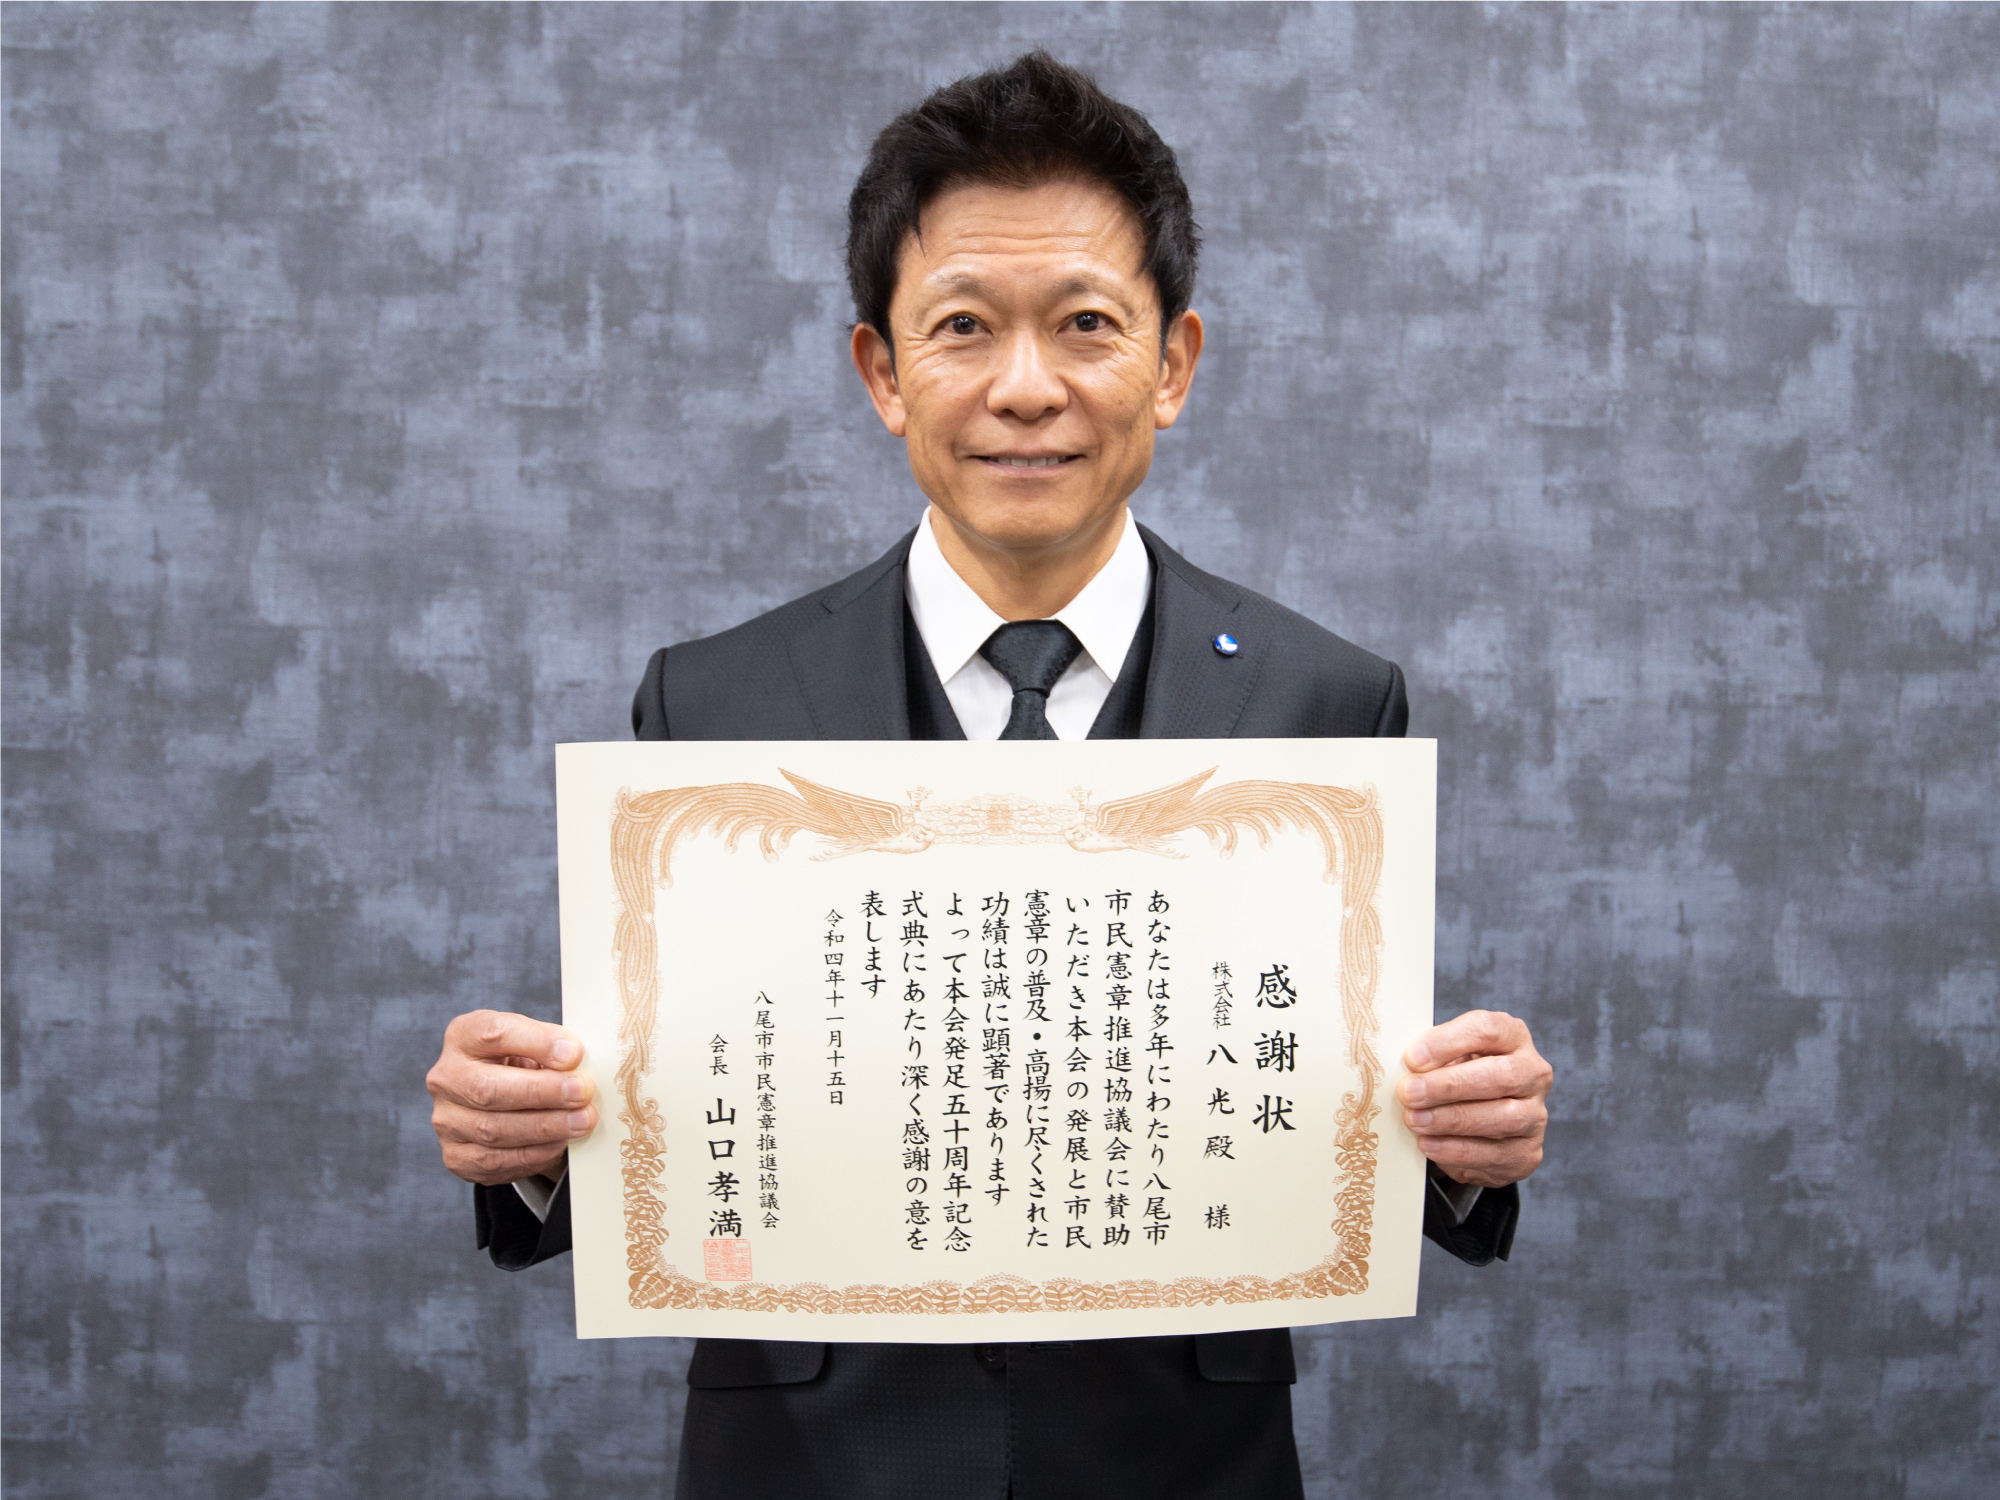 感謝状
株式会社 八光殿 様
あなたは多年にわたり八尾市
市民憲章推進協議会に賛助
いただき本会の発展と市民
憲章の普及・高揚に尽くされた
功績は誠に顕著であります
よって本会発足五十周年記念
式典にあたり深く感謝の意を
表します
令和四年十一月十五日
八尾市市民憲章推進協議会
会長 山口孝満